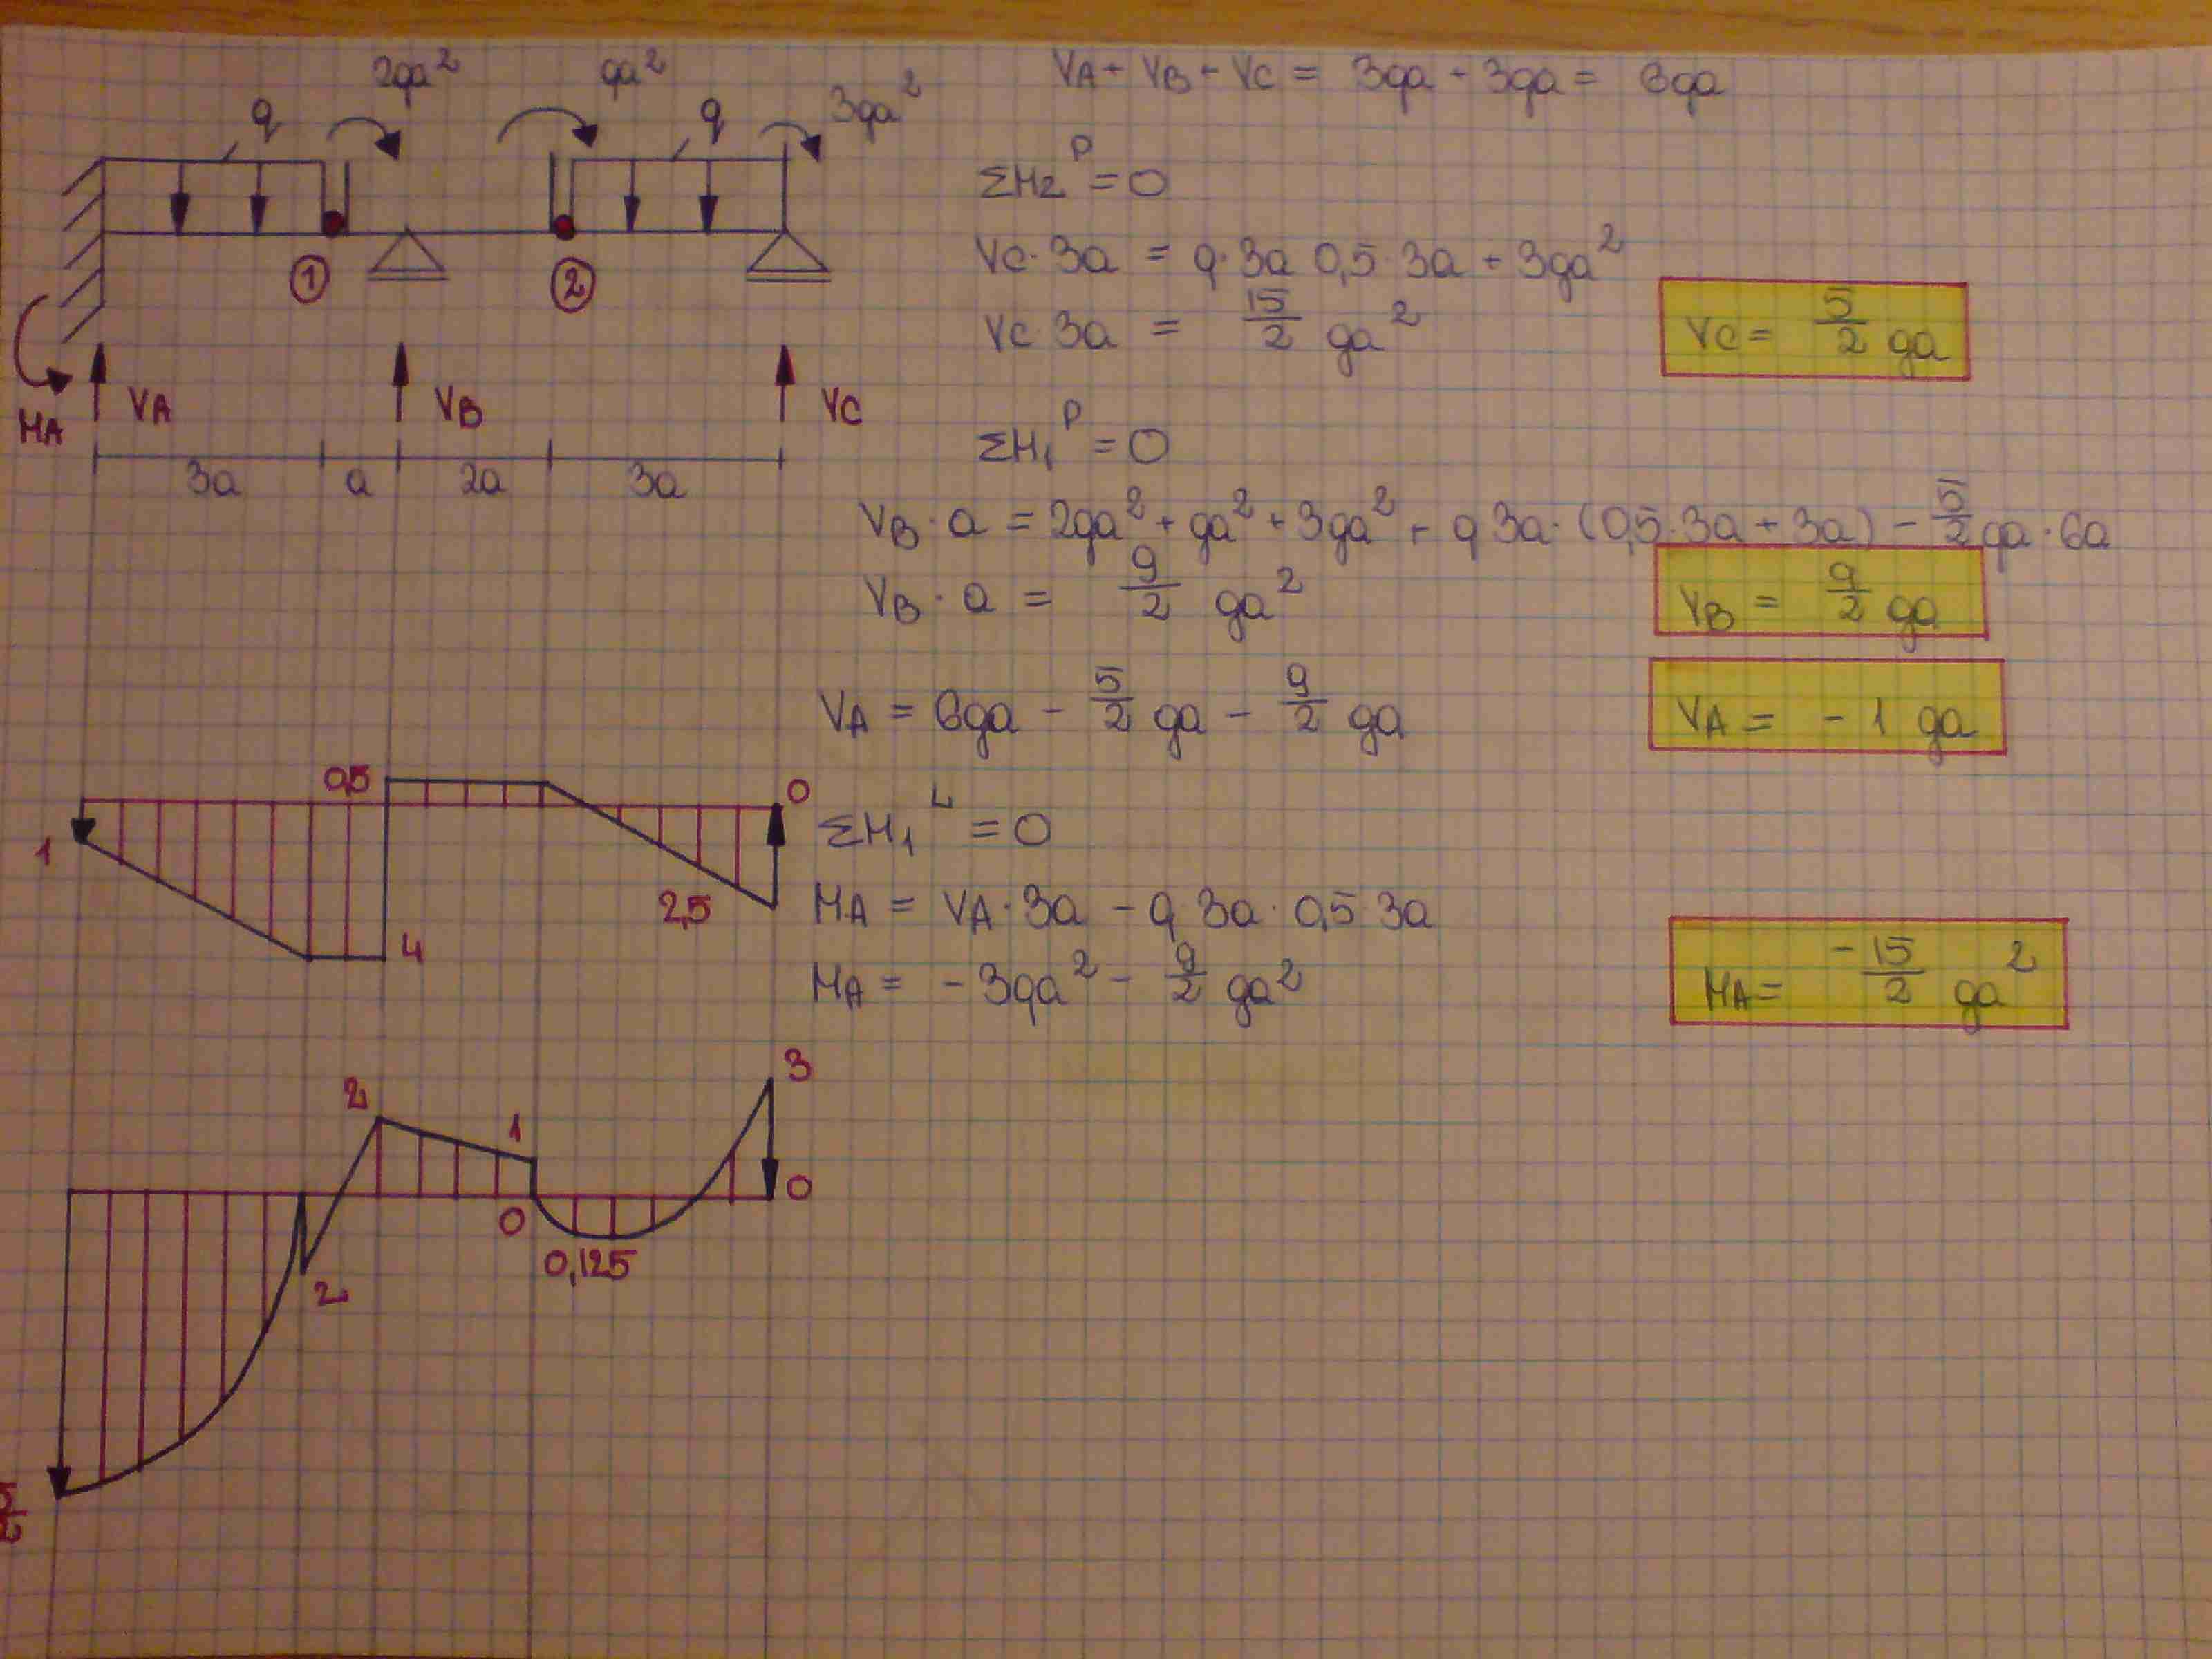 2qa² qa² 3qa²
q q
① ②
MA VA VB VC
3a a 2a 3a
VA + VB + VC = 3qa + 3qa = 6qa
ΣM₂ᴾ = 0
VC · 3a = q · 3a · 0,5 · 3a + 3qa²
VC · 3a = 15/2 qa²
VC = 5/2 qa
ΣM₁ᴾ = 0
VB · a = 2qa² + qa² + 3qa² + q 3a · (0,5 · 3a + 3a) - 5/2 qa · 6a
VB · a = 9/2 qa²
VB = 9/2 qa
VA = 6qa - 5/2 qa - 9/2 qa
VA = - 1 qa
ΣM₁ᴸ = 0
MA = VA · 3a - q 3a · 0,5 · 3a
MA = - 3qa² - 9/2 qa²
MA = - 15/2 qa²
0,5 0
1 2,5
4
3
2 1
0 0
2 0,125